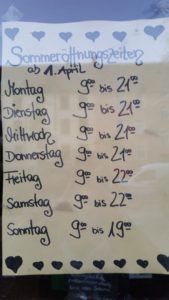 Sommeröffnungszeiten
ab 1. April
Montag 9⁰⁰ bis 21⁰⁰
Dienstag 9⁰⁰ bis 21⁰⁰
Mittwoch 9⁰⁰ bis 21⁰⁰
Donnerstag 9⁰⁰ bis 21⁰⁰
Freitag 9⁰⁰ bis 22⁰⁰
Samstag 9⁰⁰ bis 22⁰⁰
Sonntag 9⁰⁰ bis 19⁰⁰